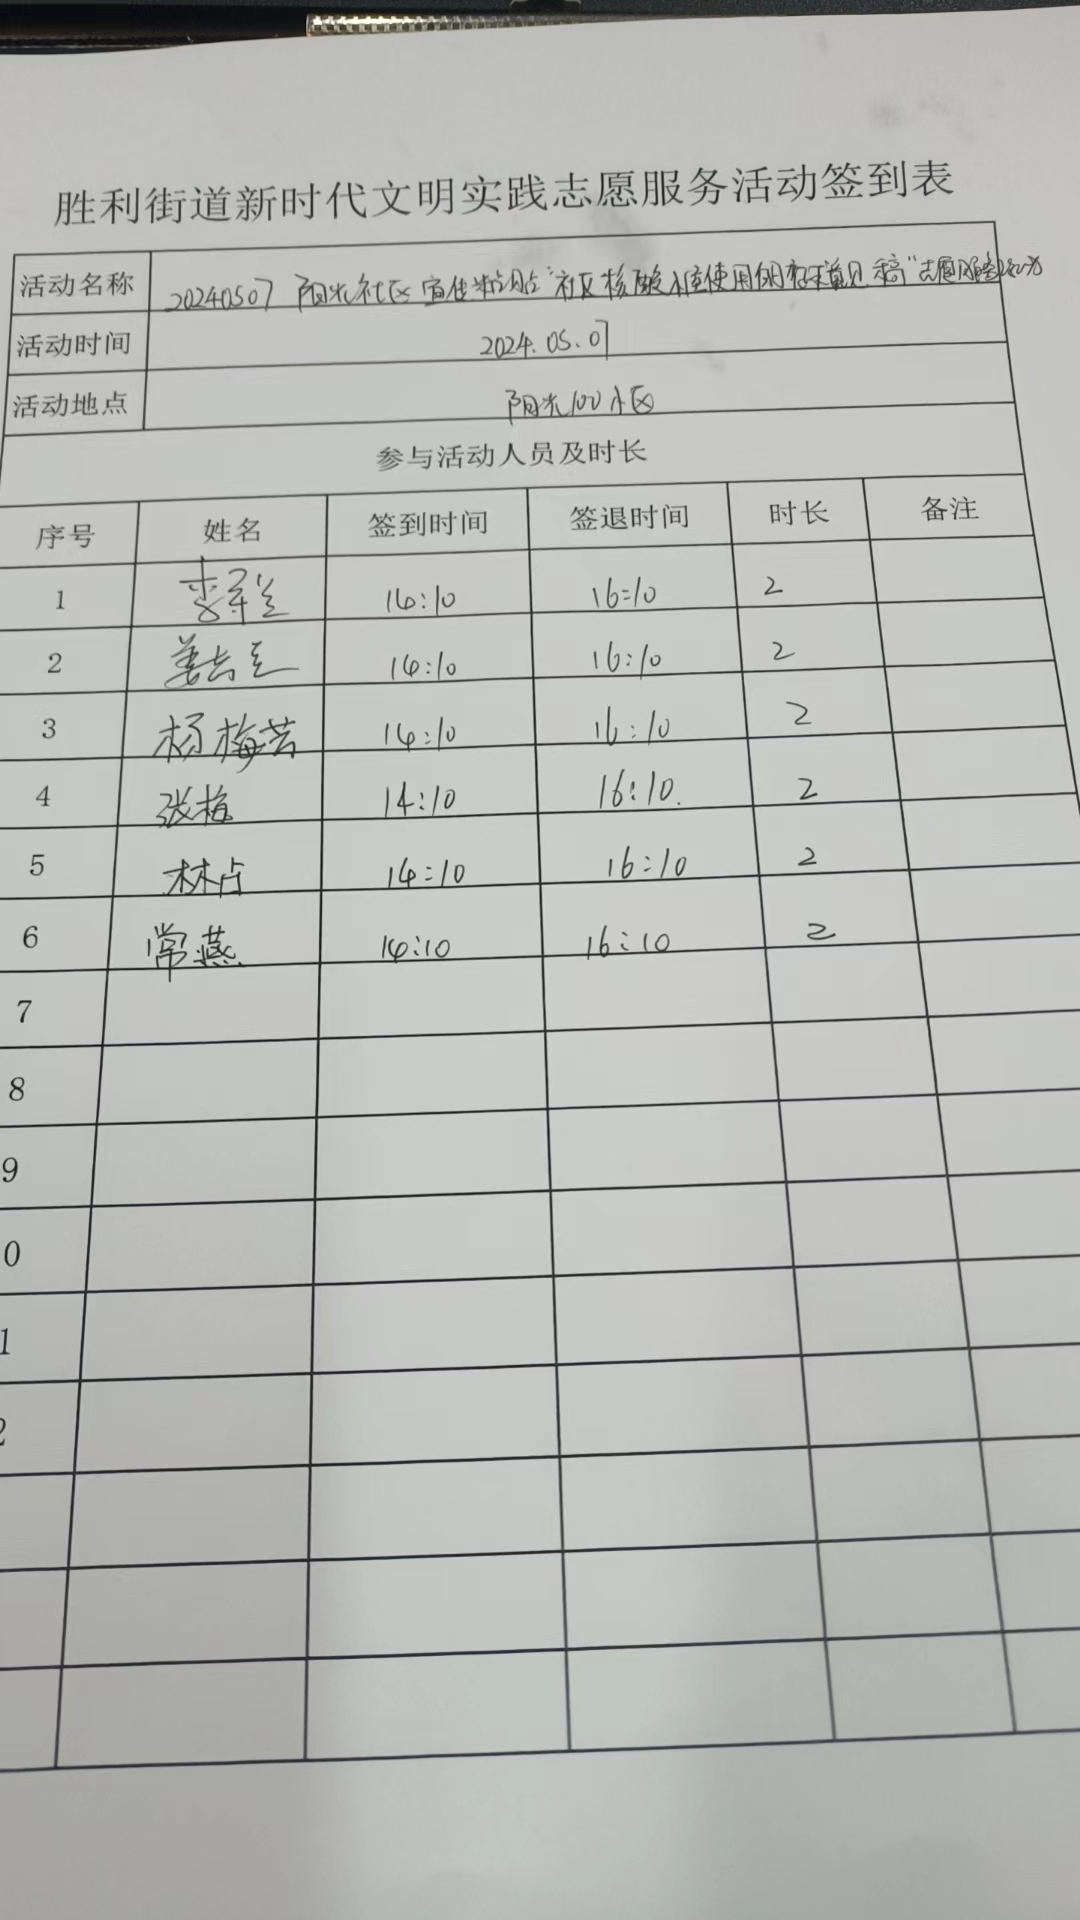 胜利街道新时代文明实践志愿服务活动签到表
活动名称 20240507 阳光社区宣传粘贴"社区核酸小屋使用征求意见稿"志愿服务活动
活动时间 2024.05.07
活动地点 阳光100小区
参与活动人员及时长
序号 姓名 签到时间 签退时间 时长 备注
1 14:10 16:10 2
2 14:10 16:10 2
3 杨梅芸 14:10 16:10 2
4 张梅 14:10 16:10. 2
5 林占 14:10 16:10 2
6 常燕 14:10 16:10 2
7
8
9
0
1
2